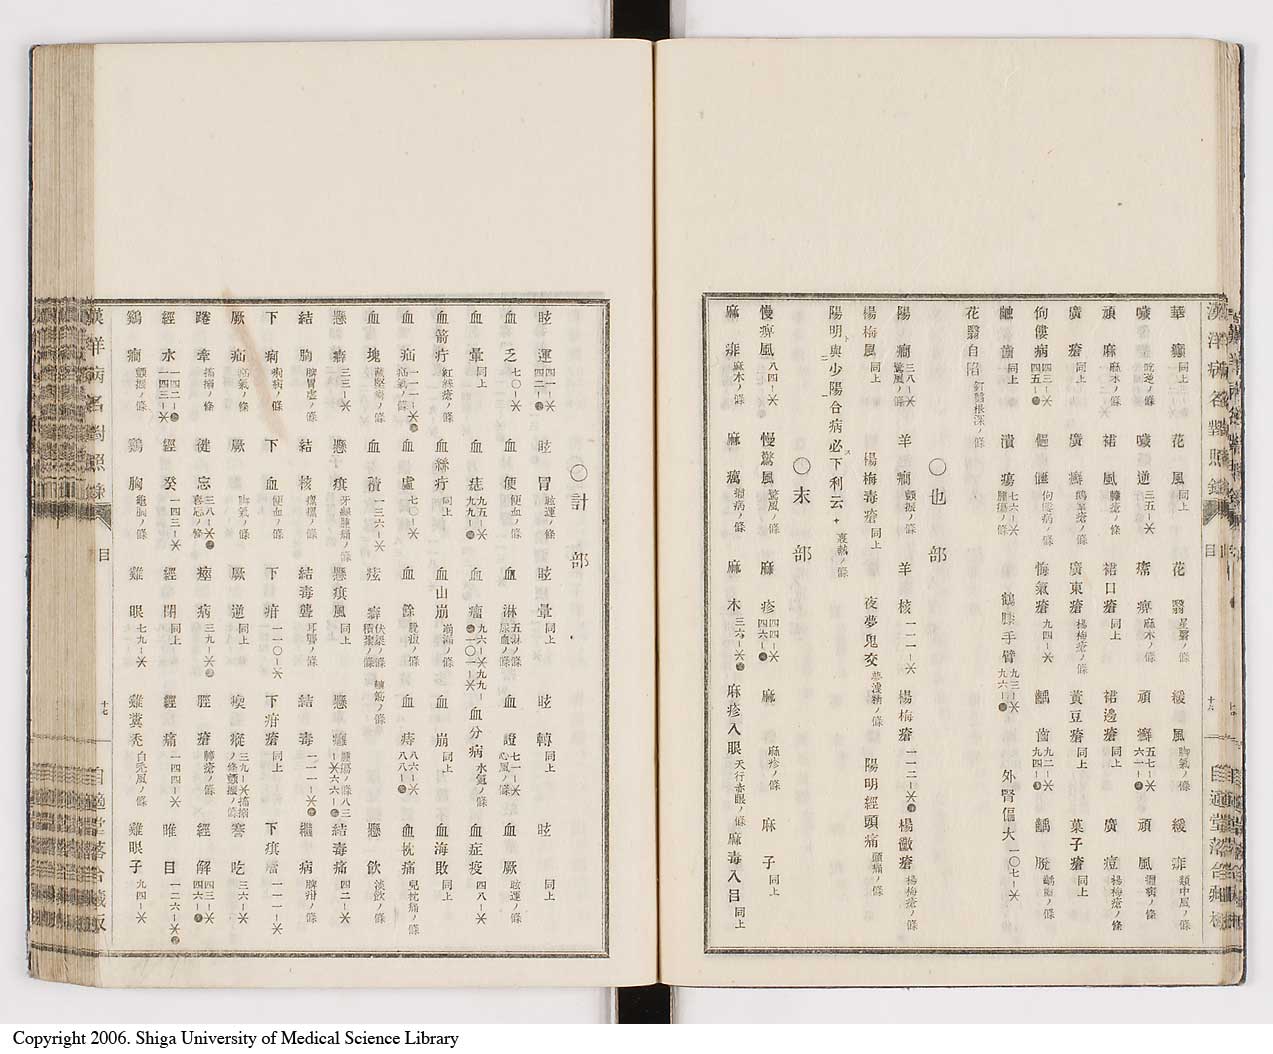 華癲同上 花風同上 花翳星翳ノ條 緩風脚氣ノ條 緩痱類中風ノ條
噦吃逆ノ條 噦逆三五-米 瘖痹麻木ノ條 頑癬五七-米六一- 頑風癘病ノ條
頑麻麻木ノ條 裙風臁瘡ノ條 裙口瘡同上 裙邊瘡同上 廣痘楊梅瘡ノ條
廣瘡同上 廣癬鵝掌瘡ノ條 廣東瘡楊梅瘡ノ條 黃豆瘡同上 菓子瘡同上
佝僂病四三-米四五- 傴僂佝僂病ノ條 悔氣瘡九四-米 齲齒九二-米九四- 齲脱齲齒ノ條
齒同上 潰瘍七六-米腫瘍ノ條 鶴膝手臂九三-米九六- 外腎偏大一〇七-米
花翳白陷釘翳根深ノ條
〇也部
陽癇三八-米驚風ノ條 羊癇顫振ノ條 羊核一一一-米 楊梅瘡一一二-米 楊黴瘡楊梅瘡ノ條
楊梅風同上 楊梅毒瘡同上 夜夢鬼交夢洩精ノ條 陽明經頭痛頭痛ノ條
陽明與少陽合病必下利云々裏熱ノ條
〇末部
慢痹風八四-米 慢驚風驚風ノ條 麻疹四四-米四六- 麻麻疹ノ條 麻子同上
麻痱麻木ノ條 麻癘癘病ノ條 麻木三六-米 麻疹入眼天行赤眼ノ條 麻毒入目同上
漢洋病名對照錄
目
十六
自適堂落合藏板
〇計部
眩運四一-米四二- 眩冒眩運ノ條 眩暈同上 眩轉同上 眩同上
血乏七〇-米 血便便血ノ條 血淋五淋ノ條尿血ノ條 血證七一-米心風ノ條 血厥眩運ノ條
血暈同上 血痣九五-米九九- 血瘤九六-米九九-一〇一-米 血分病水氣ノ條 血症疫四八-米
血箭疔紅絲瘡ノ條 血絲疔同上 血山崩崩漏ノ條 血崩同上 血海敗同上
血疝一一一-米疝氣ノ條 血虛七〇-米 血餘髮瘕ノ條 血痔八六-米八八- 血枕痛兒枕痛ノ條
血塊藏堅癥ノ條 血積一三六-米 痃癖伏梁ノ條積聚ノ條 痃筋ノ條 懸飲淡飲ノ條
懸癖三三-米 懸痕牙癰腫痛ノ條 懸痕風同上 懸癰腫瘍ノ條八三-米六- 結毒痛四二-米
結胸脾胃虛ノ條 結核瘰癧ノ條 結毒聾耳聾ノ條 結毒一一-米 繼病脾疳ノ條
下痢痢病ノ條 下血便血ノ條 下疳一一〇-米 下疳瘡同上 下痕瘤一一一-米
厥疝疝氣ノ條 厥脚氣ノ條 厥逆同上 瘈瘲三九-米搐搦ノ條顫振ノ條 謇吃三六-米
踡牽搐搦ノ條 健忘三八-米喜忘ノ條 痙病三九-米 脛瘡臁瘡ノ條 經解四三-米四六-
經水一四二-一四三-米 經癸一四三-米 經閉同上 經痛一四四-米 睢目一二六-米
鷄癇顫振ノ條 鷄胸龜胸ノ條 雞眼七九-米 雞糞禿白禿風ノ條 雞眼子九四-米
漢洋病名對照錄
目
十七
自適堂落合藏板
Copyright 2006. Shiga University of Medical Science Library